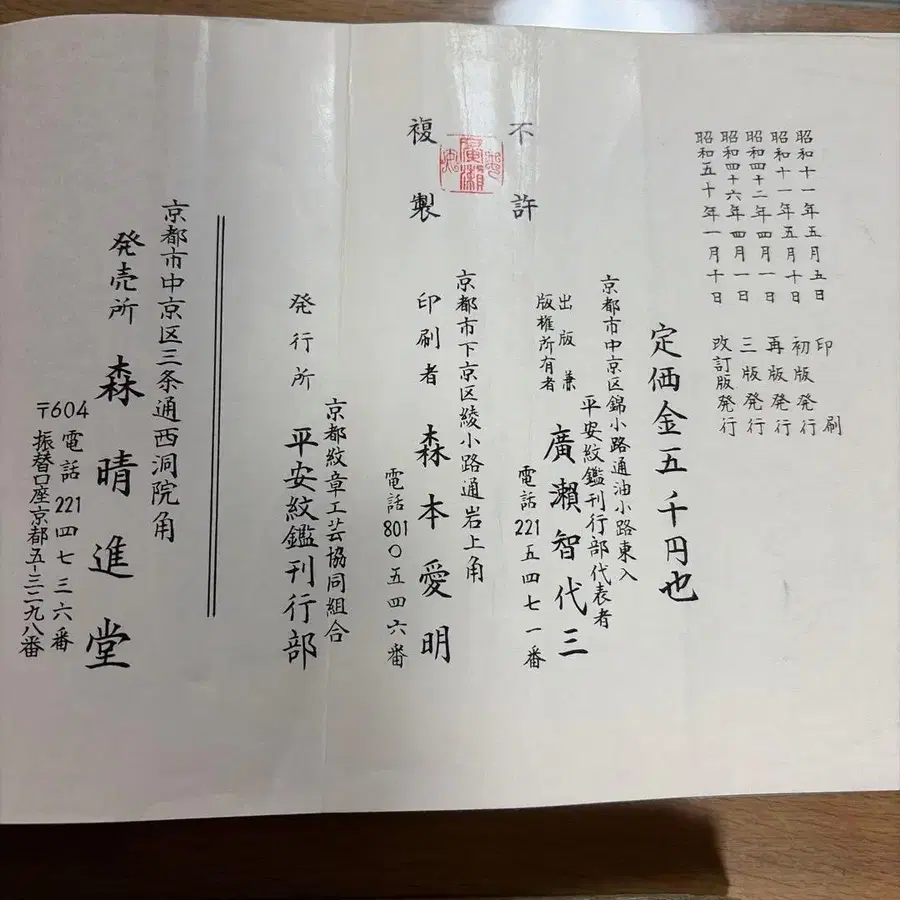 昭和十一年五月五日 印刷
昭和十一年五月十日 初版発行
昭和四十二年四月一日 再版発行
昭和四十六年四月一日 三版発行
昭和五十年一月十日 改訂版発行
定価金五千円也
京都市中京区錦小路通油小路東入
平安紋鑑刊行部代表者
出版兼
版権所有者
廣瀬智代三
電話221五四七一番
不許
複製
廣瀬
京都市下京区綾小路通岩上角
印刷者 森本愛明
電話801〇五四六番
京都紋章工芸協同組合
発行所 平安紋鑑刊行部
京都市中京区三条通西洞院角
発売所 森晴進堂
〒604 電話221四七三六番
振替口座京都五-三二九八番